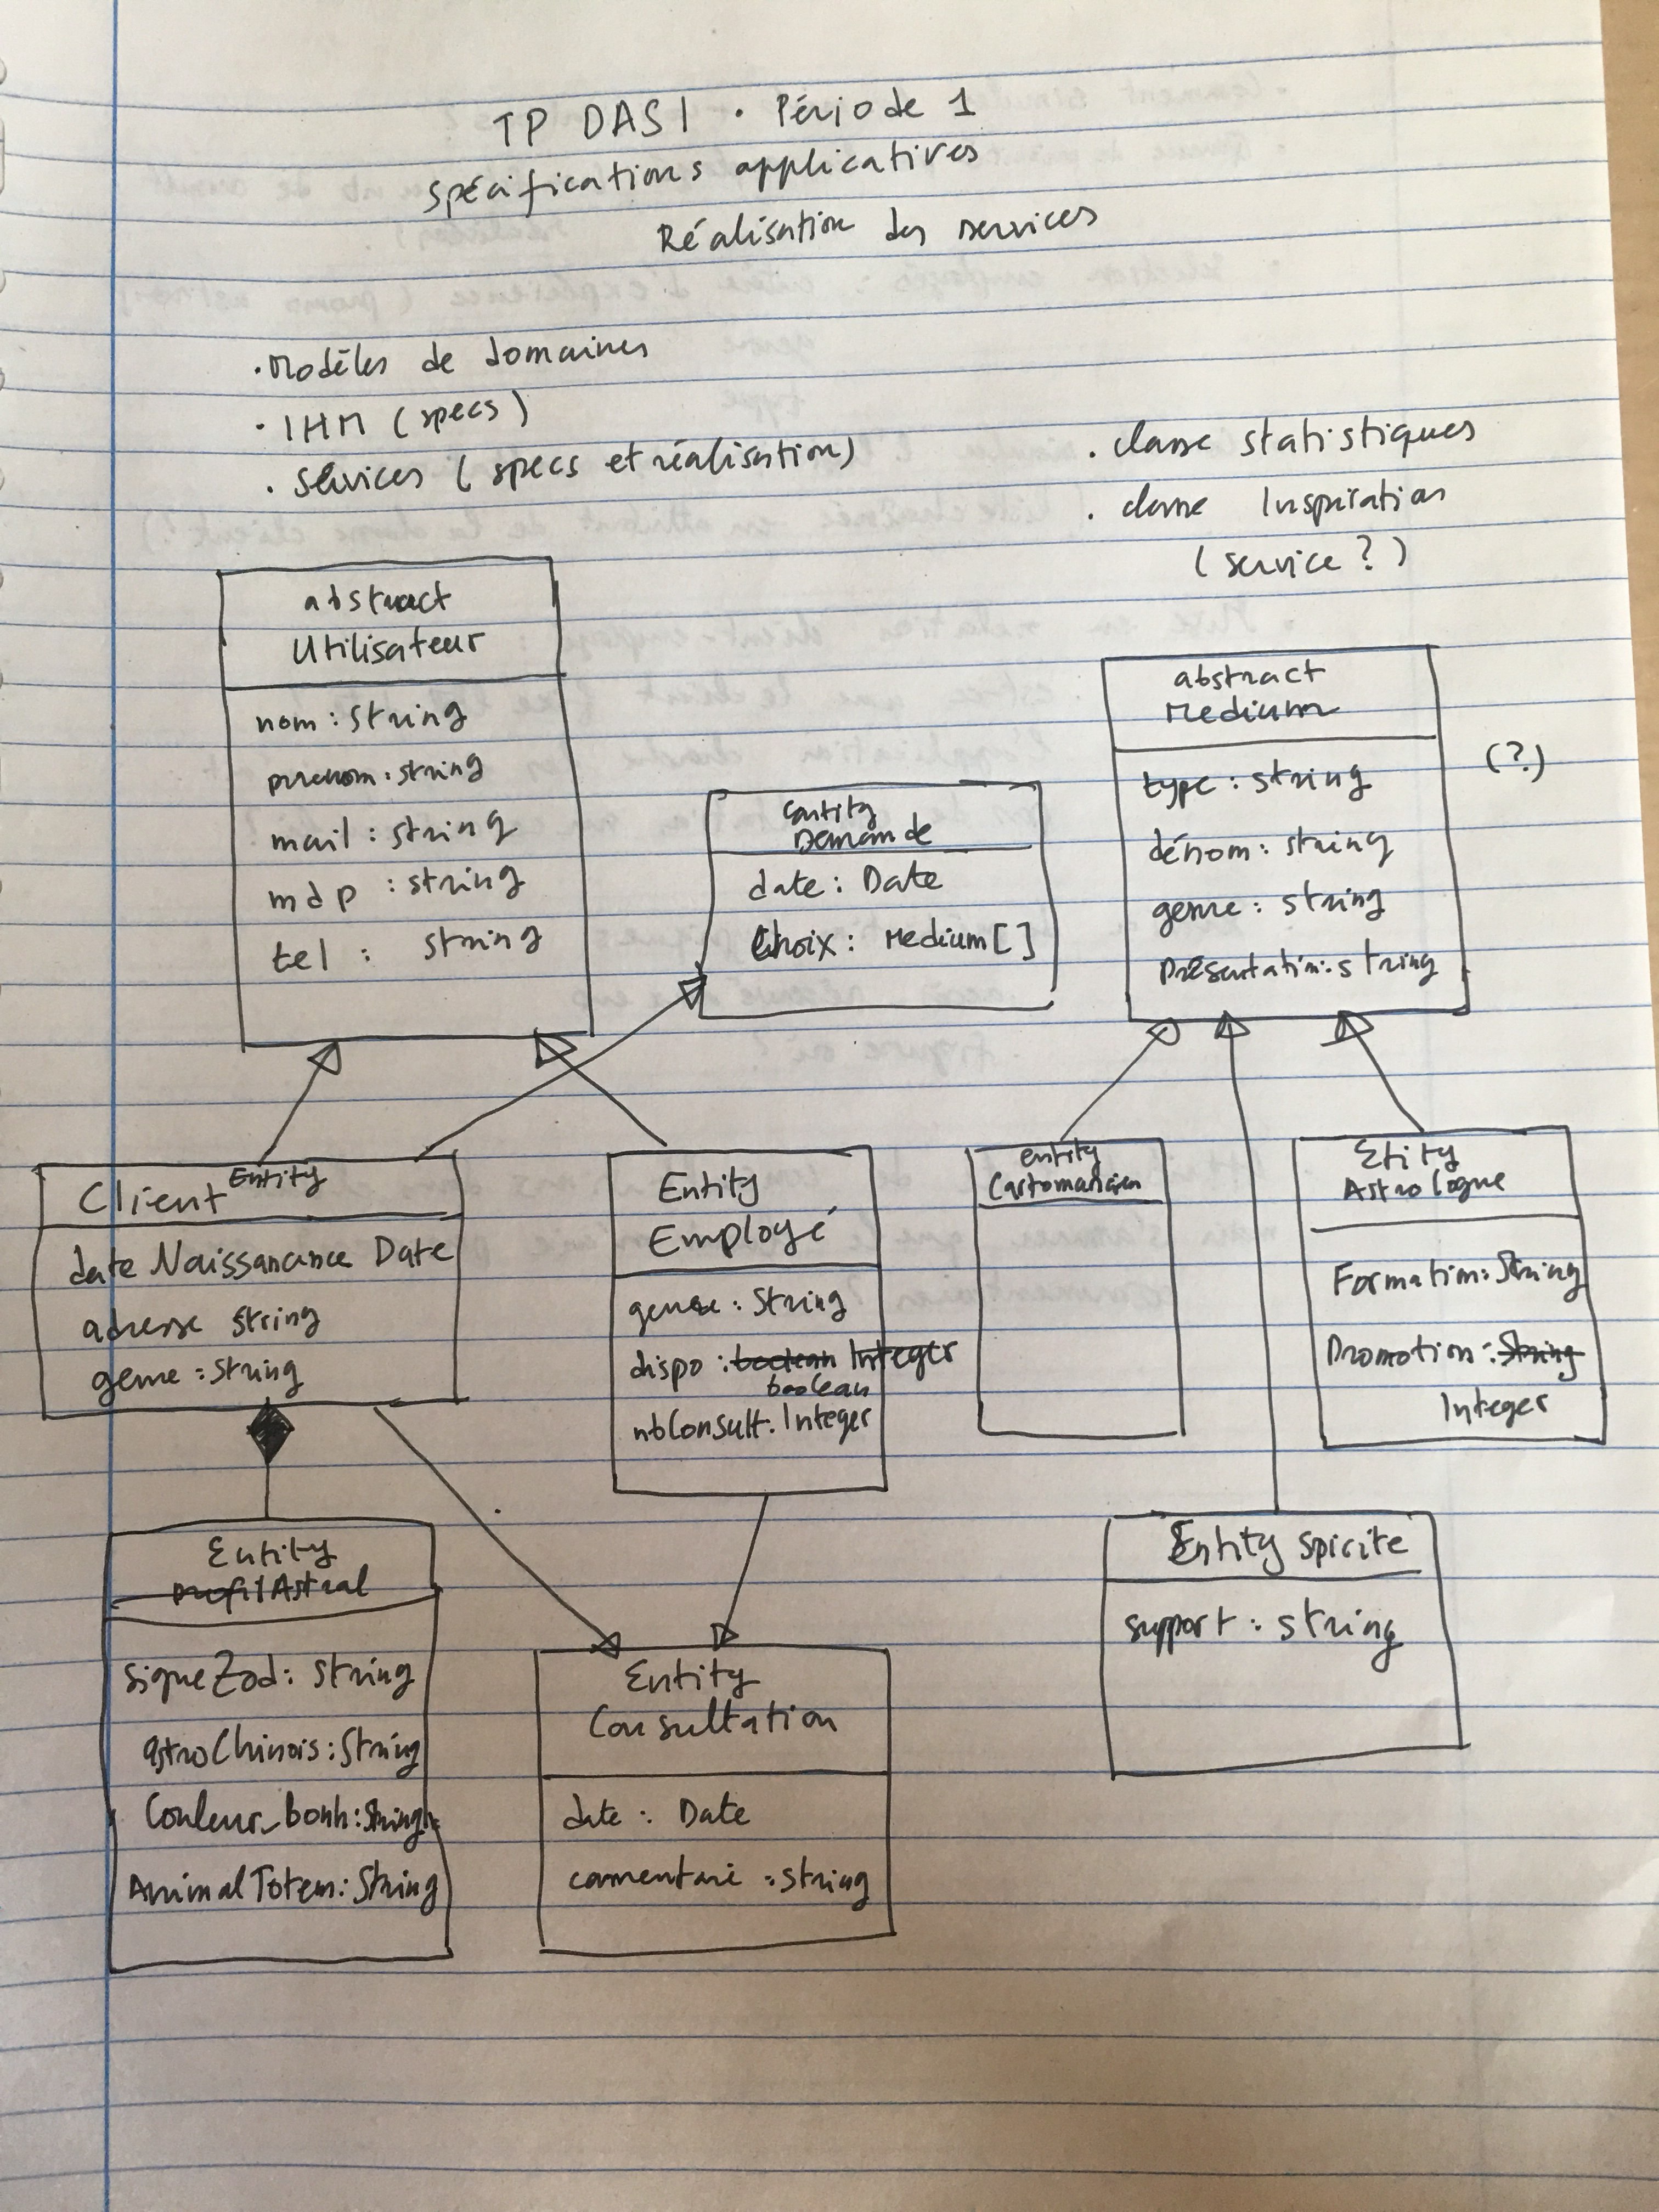 TP DASI . Période 1
Spécifications applicatives
Réalisation des services
. Modèles de domaines
. IHM (specs)
. Services (specs et réalisation)
. classe statistiques
. classe Inspiration
(service ?)
abstract
Utilisateur
nom : String
prenom : string
mail : string
mdp : string
tel : string
Entity
Demande
date : Date
Choix : Medium[]
abstract
Medium
(?)
type : string
dénom : string
genre : string
Présentation : string
Client Entity
date Naissanance Date
adresse string
genre : String
Entity
Employé
genre : String
dispo : boolean Integer
boolean
nbConsult : Integer
entity
Cartomancien
Etity
Astrologue
Formation : String
Promotion : String
Integer
Entity
profilAstral
signeZod : String
astroChinois : String
Couleur_bonh : String
AnimalTotem : String
Entity
Consultation
date : Date
commentaire : string
Entity spirite
support : string